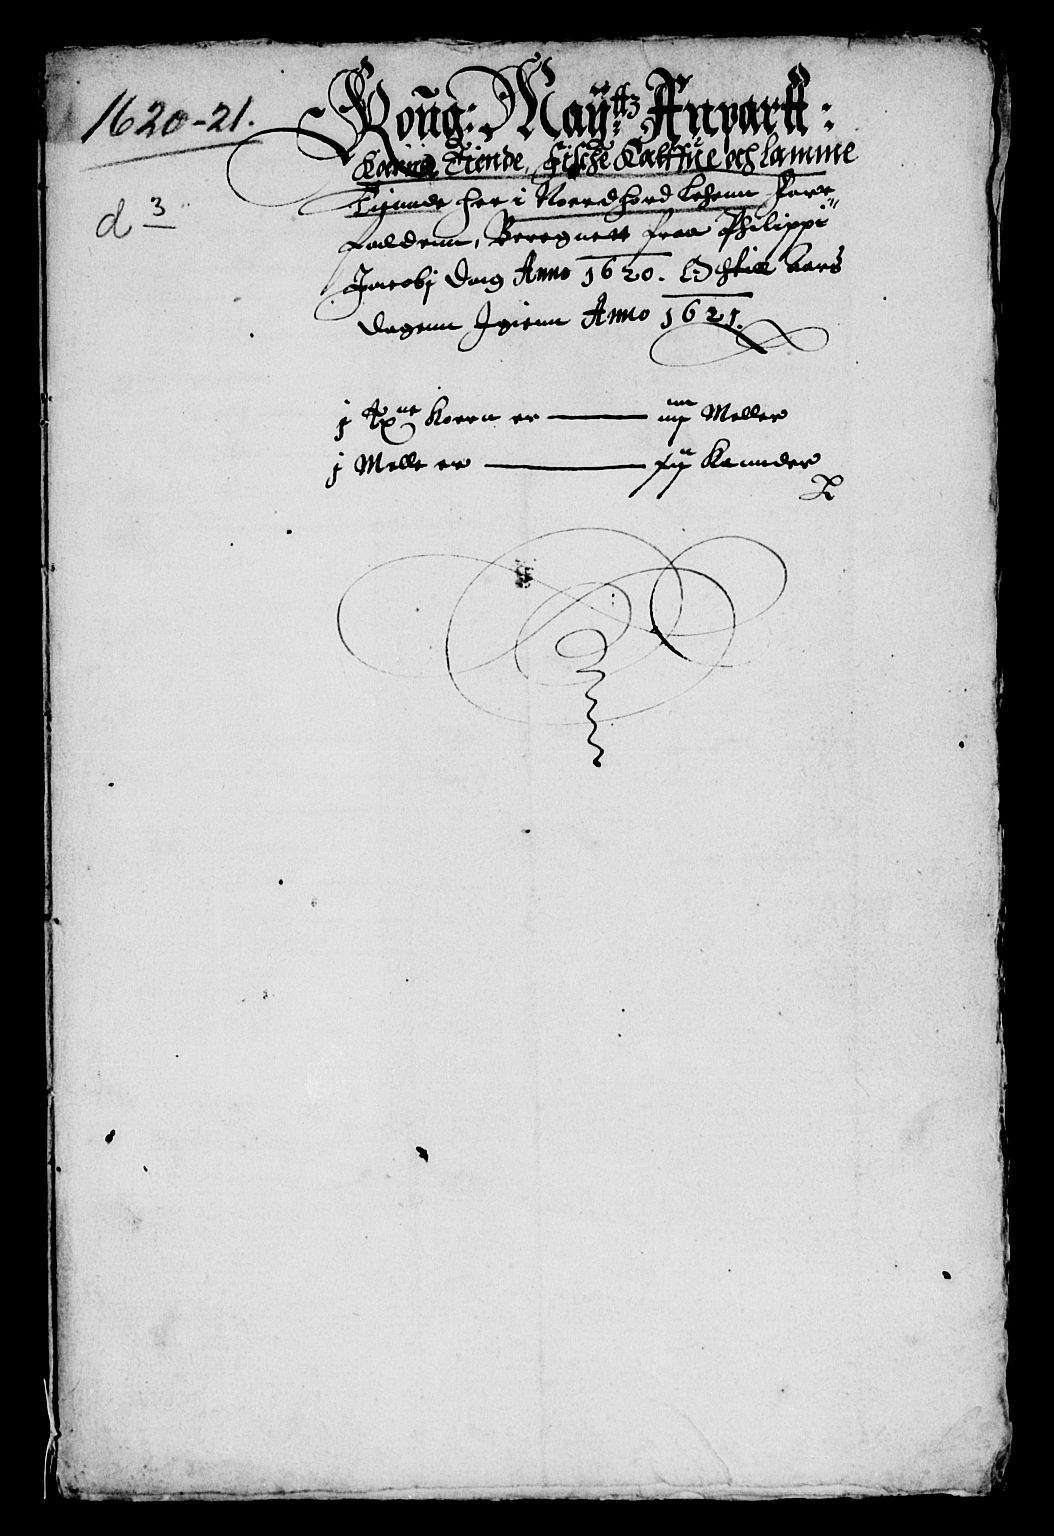 1620-21.
d 3
Kong: May:ttz Anpartt:
Korne Tiende, Fische Kalffue och lamme
Tiennde her i Noerdhord Lehenn Fore
faldenn, Beregnett fraa Philippi
Jacobj Dag Anno 1620. Och till Aars
dagenn Igienn Anno 1621.
j Koern er ——— iiij Meller
j Melle er ——— Kannder